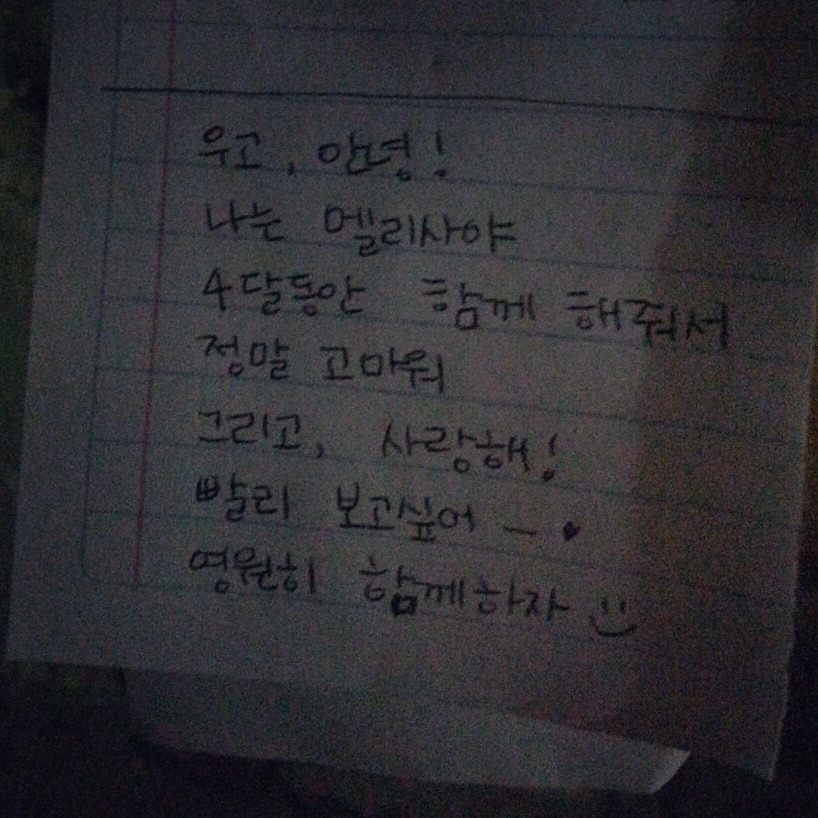 우고, 안녕!
나는 멜리사야
4달동안 함께 해줘서
정말 고마워
그리고, 사랑해!
빨리 보고싶어 ㅡ ♥
영원히 함께하자 :)